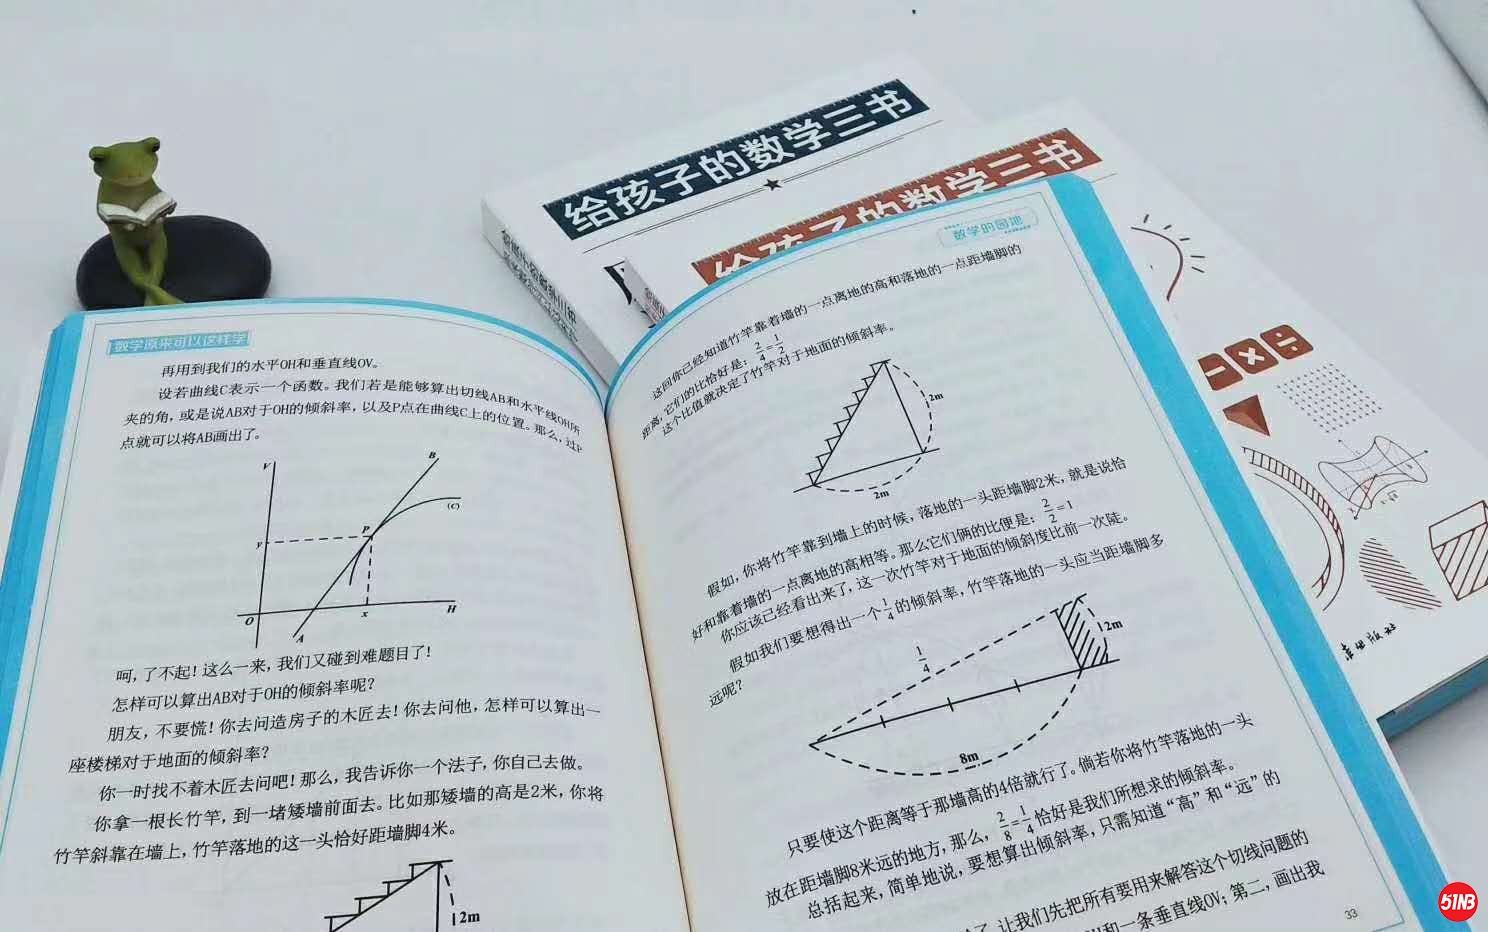 给孩子的数学三书
给孩子的数学三书
数学原来可以这样学
再用到我们的水平OH和垂直线OV。
设若曲线C表示一个函数。我们若是能够算出切线AB和水平线OH所
夹的角，或是说AB对于OH的倾斜率，以及P点在曲线C上的位置。那么，过P
点就可以将AB画出了。
V
B
(C)
P
y
O
x
H
A
呵，了不起！这么一来，我们又碰到难题目了！
怎样可以算出AB对于OH的倾斜率呢？
朋友，不要慌！你去问造房子的木匠去！你去问他，怎样可以算出一
座楼梯对于地面的倾斜率？
你一时找不着木匠去问吧！那么，我告诉你一个法子，你自己去做。
你拿一根长竹竿，到一堵矮墙前面去。比如那矮墙的高是2米，你将
竹竿斜靠在墙上，竹竿落地的这一头恰好距墙脚4米。
2m
数学的园地
这回你已经知道竹竿靠着墙的一点离地的高和落地的一点距墙脚的
距离，它们的比恰好是：2/4=1/2
这个比值就决定了竹竿对于地面的倾斜率。
2m
2m
假如，你将竹竿靠到墙上的时候，落地的一头距墙脚2米，就是说恰
好和靠着墙的一点离地的高相等。那么它们俩的比便是：2/2=1
你应该已经看出来了，这一次竹竿对于地面的倾斜度比前一次陡。
假如我们要想得出一个1/4的倾斜率，竹竿落地的一头应当距墙脚多
远呢？
1/4
2m
8m
只要使这个距离等于那墙高的4倍就行了。倘若你将竹竿落地的一头
放在距墙脚8米远的地方，那么，2/8=1/4恰好是我们所想求的倾斜率。
总括起来，简单地说，要想算出倾斜率，只需知道“高”和“远”的
让我们先把所有要用来解答这个切线问题的
和一条垂直线OV；第二，画出我
33
51NB